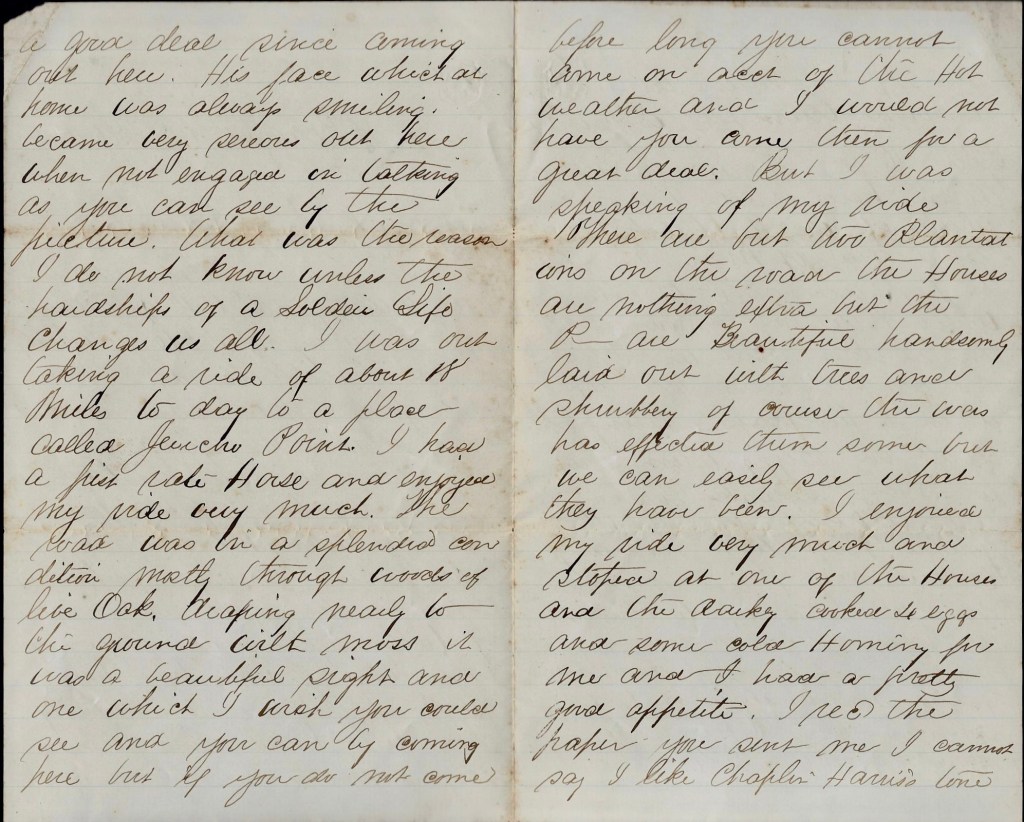 a good deal since coming
out here. His face which at
home was always smiling.
became very sereous out here
when not engaged in talking
as you can see by the
picture. What was the reason
I do not know unless the
hardships of a Soldier Life
Changes us all. I was out
taking a ride of about 18
Miles to day to a place
called Jericho Point. I had
a first rate Horse and enjoyed
my ride very much. The
road was in a splendid con
dition mostly through woods of
live Oak. draping nearly to
the ground with moss it
was a beautiful sight and
one which I wish you could
see and you can by coming
here but if you do not come
before long you cannot
come on acct of the Hot
weather and I would not
have you come then for a
great deal. But I was
speaking of my ride
There are but two Plantat
ions on the road the Houses
are nothing extra but the
P— are Beautiful handsomly
laid out with trees and
shrubbery of course the war
has effected them some but
we can easily see what
they have been. I enjoied
my ride very much and
stoped at one of the Houses
and the darkey cooked 4 eggs
and some cold Hominy for
me and I had a pretty
good appetite. I recd the
paper you sent me I cannot
say I like Chaplin Harris's tone